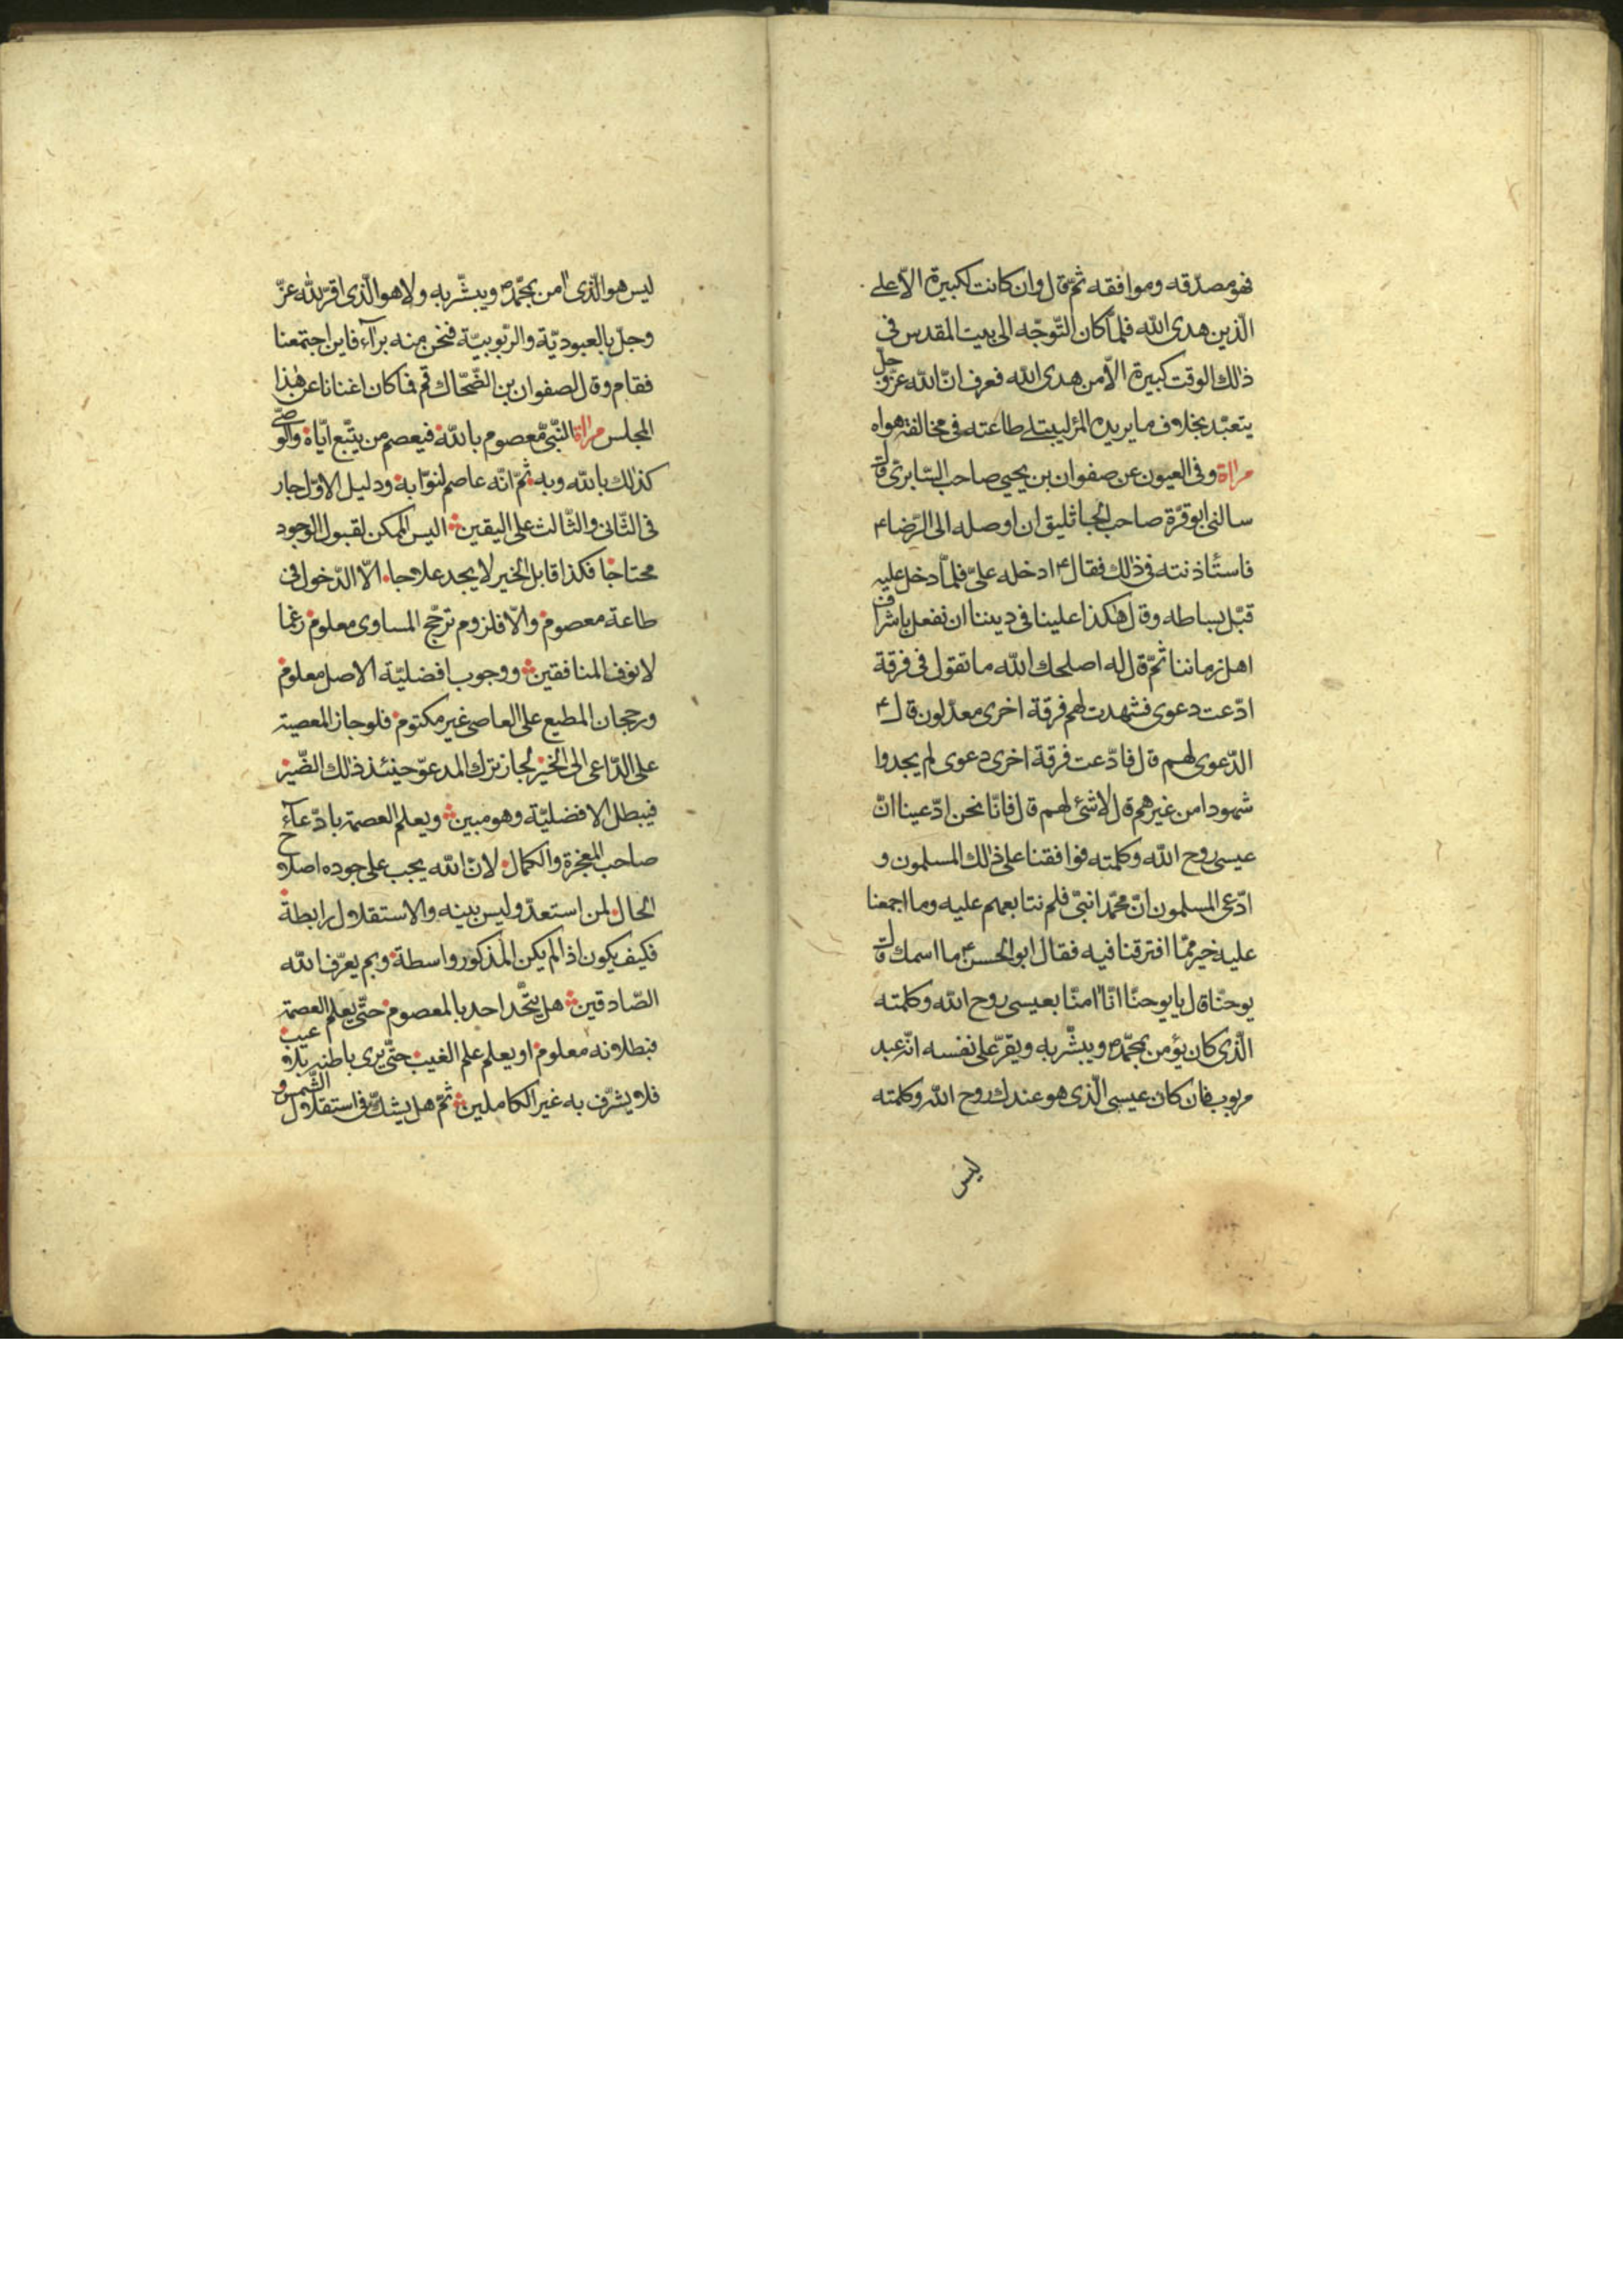 فهو مصدّقه وموافقه ثمّ قال وان كانت لكبيرة الّا على
الّذين هدى الله فلمّا كان التّوجّه الى بيت المقدس فى
ذلك الوقت كبيرة الّا من هدى الله فعرف انّ الله عزّ وجلّ
يتعبّد بخلاف ما يريده المرء ليبتلى طاعته فى مخالفته هواه
مراة وفى العيون عن صفوان بن يحيى صاحب السّابرى قال
سالنى ابو قرّة صاحب الجاثليق ان اوصله الى الرّضا ع
فاستأذنته فى ذلك فقال ع ادخله علىّ فلمّا دخل عليه
قبّل بساطه وقال هكذا علينا فى ديننا ان نفعل باشراف
اهل زماننا ثمّ قال له اصلحك الله ما تقول فى فرقة
ادّعت دعوى فشهدت لهم فرقة اخرى معدّلون قال ع
الدّعوى لهم قال فادّعت فرقة اخرى دعوى لم يجدوا
شهودا من غيرهم قال لا شئ لهم قال فانّا نحن ادّعينا انّ
عيسى روح الله وكلمته فوافقنا على ذلك المسلمون و
ادّعى المسلمون انّ محمّدا نبىّ فلم نتابعهم عليه وما اجمعنا
عليه خير ممّا افترقنا فيه فقال ابو الحسن ع ما اسمك قال
يوحنّا قال يا يوحنّا انّا امنّا بعيسى روح الله وكلمته
الّذى كان يؤمن بمحمّد ص ويبشّر به ويقرّ على نفسه انّه عبد
مربوب فان كان عيسى الّذى هو عندك روح الله وكلمته
ليس
ليس هو الّذى امن بمحمّد ص ويبشّر به ولا هو الّذى اقرّ لله عزّ
وجلّ بالعبوديّة والرّبوبيّة فنحن منه برآء فاين اجتمعنا
فقام وقال لصفوان بن الضّحّاك قم فما كان اغنانا عن هذا
المجلس مراة النّبىّ معصوم بالله فيعصم من يتّبع ايّاه والوصىّ
كذلك بالله وبه ثمّ انّه عاصم لنوّابه ودليل الاوّل جار
فى الثّانى والثّالث على اليقين اليس الممكن لقبول الوجود
محتاجا فكذا قابل الخير لا يجد علاجا الّا الدّخول فى
طاعة معصوم والّا فلزوم ترجّح المساوى معلوم رغما
لانوف المنافقين ووجوب افضليّة الاصل معلوم
ورجحان المطيع على العاصى غير مكتوم فلو جاز المعصية
على الدّاعى الى الخير لجاز ترك المدعوّ حينئذ ذلك الضّير
فيبطل الافضليّة وهو مبين ويعلم العصمة بادّعآء
صاحب المعجزة والكمال لانّ الله يجب على جوده اصلاح
الحال لمن استعدّ وليس بينه والاستقلال رابطة
فكيف يكون اذا لم يكن المذكور واسطة وبم يعرّف الله
الصّادقين هل يتّحد احد بالمعصوم حتّى يعلم العصمة
فبطلانه معلوم او يعلم علم الغيب حتّى يرى باطنه بلا عيب
فلا يشرّف به غير الكاملين ثمّ هل يشكّ فى استقلال الشّمس و